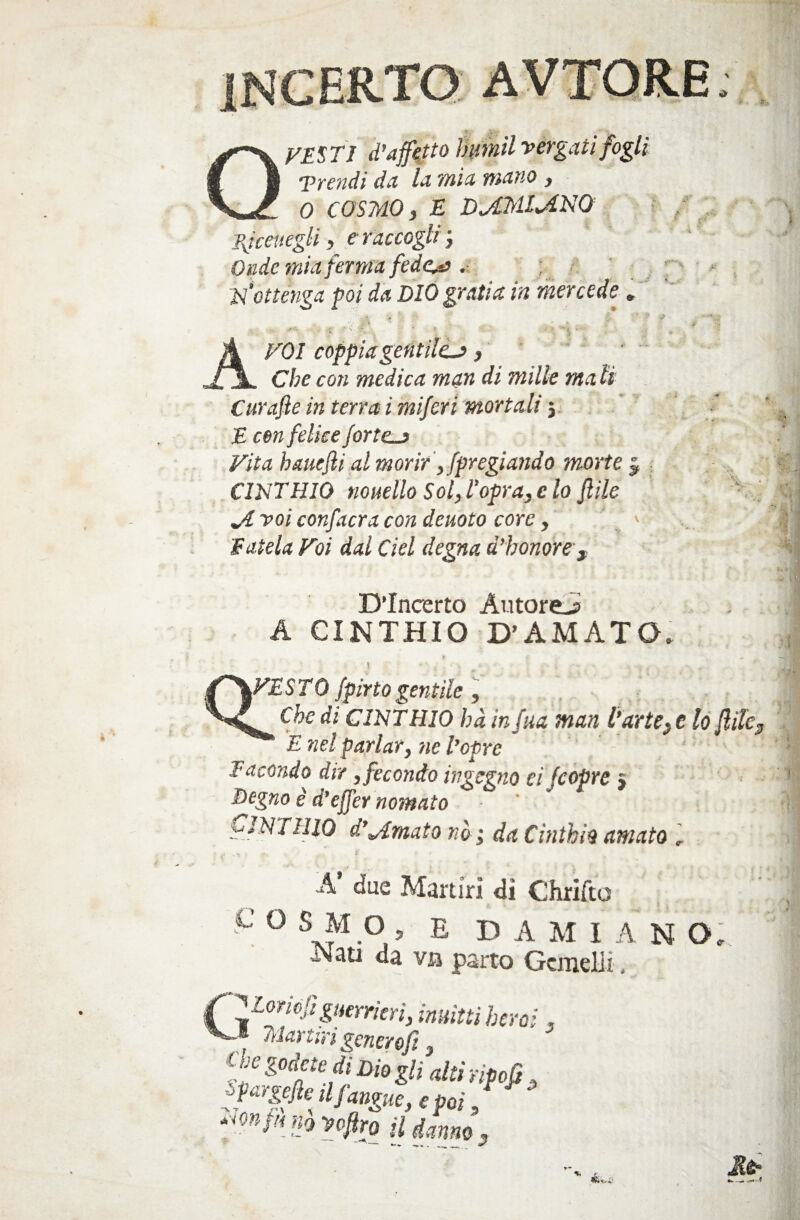 INCERTO AVTORE.
QVESTI d'affetto humil vergati fogli
Prendi da la mia mano,
O COSMO, E DAMIANO
Riceuegli, e raccogli;
Onde mia ferma fede.
N'ottenga poi da DIO gratia in mercede.
A VOI coppia gentile,
Che con medica man di mille mali
Curaste in terra i miseri mortali;
E con felice sorte
Vita hauesti al morir, spregiando morte;
CINTHIO nouello Sol, l'opra, e lo stile
A voi consacra con deuoto core,
Fatela Voi dal Ciel degna d'honore.
D'Incerto Autore
A CINTHIO D'AMATO.
QVESTO spirto gentile,
Che di CINTHIO hà in sua man l'arte, e lo stile,
E nel parlar, ne l'opre
Facondo dir, fecondo ingegno ei scopre;
Degno è d'esser nomato
CINTHIO d'Amato nò; da Cinthia amato.
A' due Martiri di Christo
COSMO, E DAMIANO.
Nati da vn parto Gemelli.
GLoriosi guerrieri, inuitti heroi,
Martiri generosi,
Che godete di Dio gli alti riposi,
Spargeste il sangue, e poi,
Non fù nò vostro il danno,
Re-